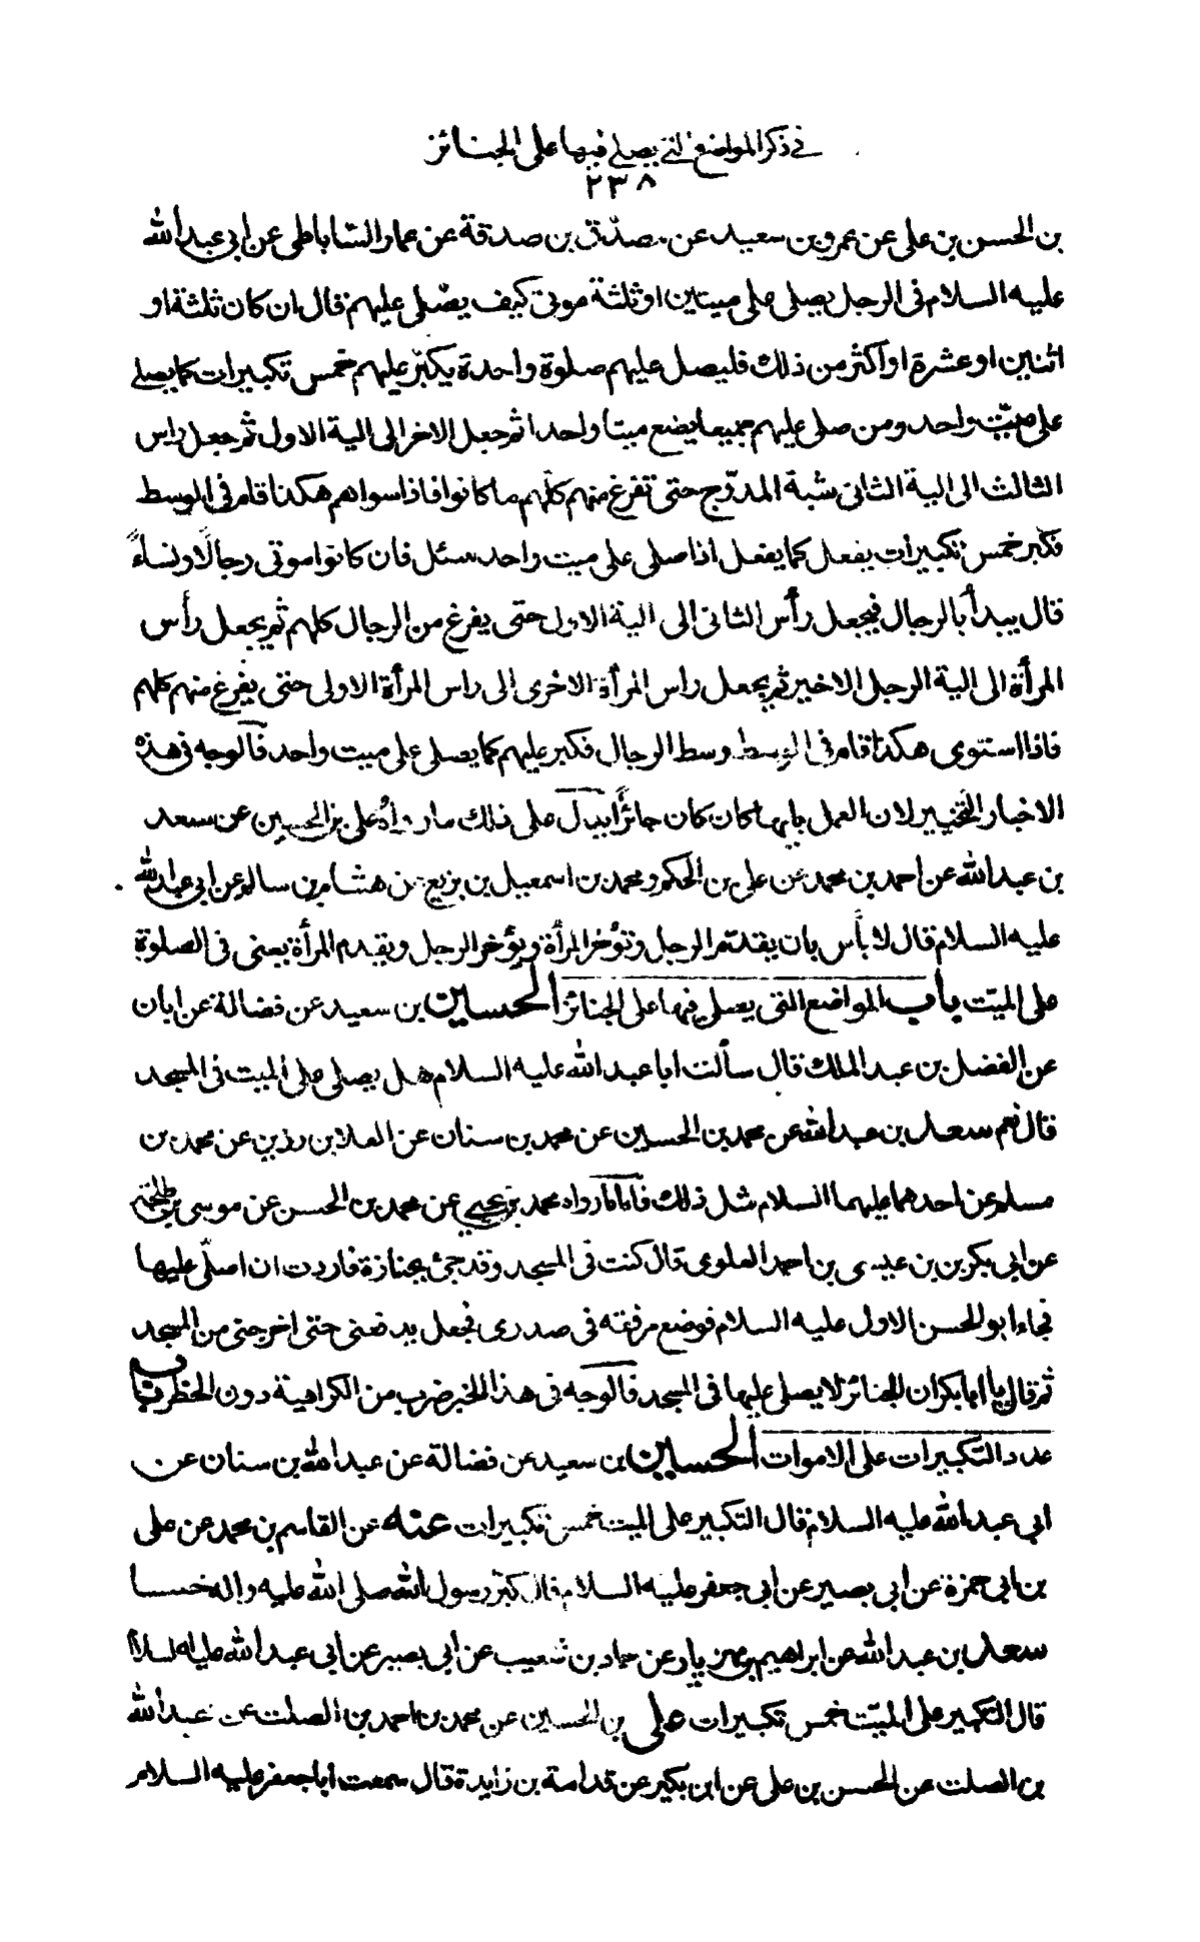 في ذكر المواضع التي يصلي فيها على الجنائز
٢٣٨
بن الحسن بن على عن عمرو بن سعيد عن مصدّق بن صدقة عن عمار الساباطى عن ابى عبد الله
عليه السلام فى الرجل يصلى على ميتين او ثلثة موتى كيف يصلى عليهم قال ان كان ثلثة او
اثنين او عشرة او اكثر من ذلك فليصل عليهم صلوة واحدة يكبّر عليهم خمس تكبيرات كما يصلے
على ميّت واحد ومن صلى عليهم جميعا يضع ميتا واحدا ثم جعل الاخر الى الية الاول ثم جعل راس
الثالث الى الية الثانى شبة المدرّج حتى تفرغ منهم كلّهم ما كانوا فاذا سواهم هكذا قام فى الوسط
فكبّر خمس تكبيرات يفعل كما يفعل اذا صلى على ميت واحد سئل فان كانوا موتى رجالًا ونساءً
قال يبدأ بالرجال فيجعل رأس الثانى الى الية الاول حتى يفرغ من الرجال كلهم ثم يجعل رأس
المرأة الى الية الرجل الاخير ثم يجعل راس المرأة الاخرى الى راس المرأة الاولى حتى يفرغ منهم كلهم
فاذا استوى هكذا قام فى الوسط وسط الرجال فكبر عليهم كما يصلى على ميت واحد فالوجه فى هذه
الاخبار التخيير لان العمل بايها كان كان جائزًا يدل على ذلك ما رواه على بن الحسين عن سعد
بن عبد الله عن احمد بن محمد عن على بن الحكم ومحمد بن اسمعيل بن بزيع عن هشام بن سالم عن ابى عبد الله
عليه السلام قال لا بأس بان يقدّم الرجل وتؤخر المرأة ويؤخر الرجل ويقدم المرأة يعنى فى الصلوة
على الميّت باب المواضع التى يصلى فيها على الجنائز الحسين بن سعيد عن فضالة عن ابان
عن الفضل بن عبد الملك قال سألت ابا عبد الله عليه السلام هل يصلى على الميت فى المسجد
قال نعم سعد بن عبد الله عن محمد بن الحسين عن محمد بن سنان عن العلا بن رزين عن محمد بن
مسلم عن احدهما عليهما السلام مثل ذلك فاما ما رواه محمد بن يحيى عن محمد بن الحسن عن موسى بن طلحة
عن ابى بكر بن بن عيسى بن احمد العلوى قال كنت فى المسجد وقد جئ بجنازة فاردت ان اصلّى عليها
فجاء ابو الحسن الاول عليه السلام فوضع مرفقه فى صدرى فجعل يدفعنى حتى اخرجنى من المسجد
ثم قال يا ابا بكر ان الجنائز لا يصلى عليها فى المسجد فالوجه فى هذا الخبر ضرب من الكراهية دون الحظر باب
عدد التكبيرات على الاموات الحسين بن سعيد عن فضالة عن عبد الله بن سنان عن
ابى عبد الله عليه السلام قال التكبير على الميت خمس تكبيرات عنه عن القاسم بن محمد عن على
بن ابى حمزة عن ابى بصير عن ابى جعفر عليه السلام قال كبّر رسول الله صلى الله عليه واله خمسا
سعد بن عبد الله عن ابراهيم بن مهزيار عن حماد بن شعيب عن ابى بصير عن ابى عبد الله عليه السلام
قال التكبير على الميّت خمس تكبيرات على بن الحسين عن محمد بن احمد بن الصلت عن عبد الله
بن الصلت عن الحسن بن على عن ابن بكير عن قدامة بن زايدة قال سمعت ابا جعفر عليه السلام